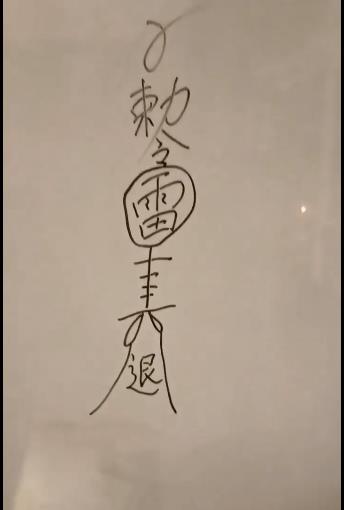 敕
令
雷
退